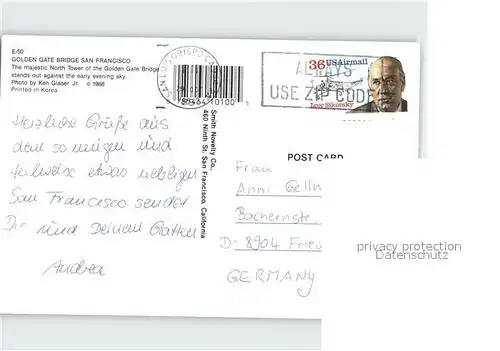 E-50
GOLDEN GATE BRIDGE SAN FRANCISCO
The majestic North Tower of the Golden Gate Bridge
stands out against the early evening sky.
Photo by Ken Glaser Jr. © 1988
Printed in Korea
Herzliche Grüße aus
dem so und
teilweise etwas nebligen
San Francisco sendet
Dir und Deinem Gatten
Andrea
SAN LUIS OBISPO CA
Smith Novelty Co.
460 Ninth St. San Francisco, California
36 USAirmail
Igor Sikorsky
ALWAYS
USE ZIP CODE
POST CARD
Frau
Anni Gelln
Bachernstr.
D-8904 Frie
GERMANY
privacy protection
Datenschutz